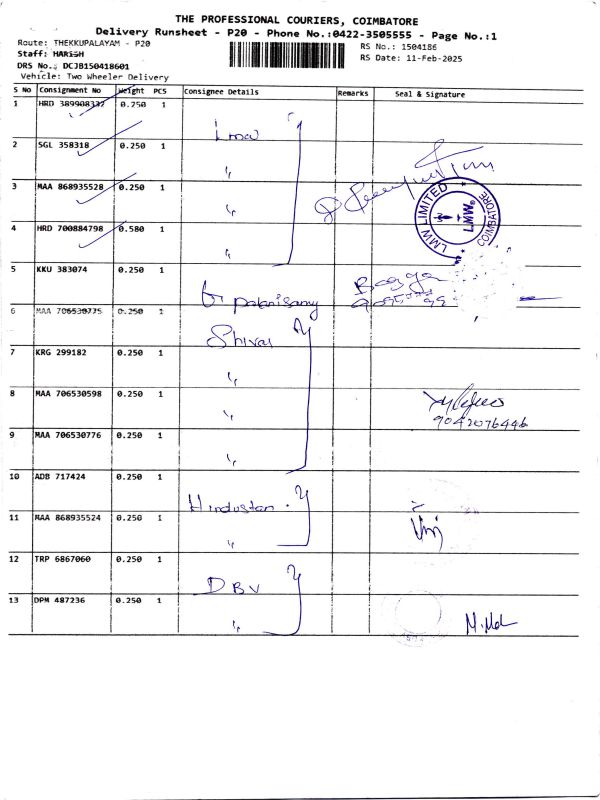 THE PROFESSIONAL COURIERS, COIMBATORE
Delivery Runsheet - P20 - Phone No.:0422-3505555 - Page No.:1
Route: THEKKUPALAYAM - P20
Staff: HARISH
DRS No.: DCJB150418601
Vehicle: Two Wheeler Delivery
RS No.: 1504186
RS Date: 11-Feb-2025
S No Consignment No Weight PCS Consignee Details Remarks Seal & Signature
1 HRD 389908337 0.250 1
2 SGL 358318 0.250 1 "
3 MAA 868935528 0.250 1 "
4 HRD 700884798 0.580 1 "
LMW LIMITED LMW COIMBATORE
5 KKU 383074 0.250 1 palanisamy
6 MAA 706530775 0.250 1 Shivas
7 KRG 299182 0.250 1 "
8 MAA 706530598 0.250 1 "
9042076446
9 MAA 706530776 0.250 1 "
10 ADB 717424 0.250 1 Hindustan
11 MAA 868935524 0.250 1 "
12 TRP 6867060 0.250 1 DBV
13 DPM 487236 0.250 1 "